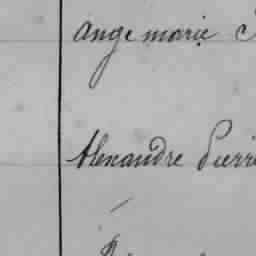 Ange marie
Alexandre Pierre